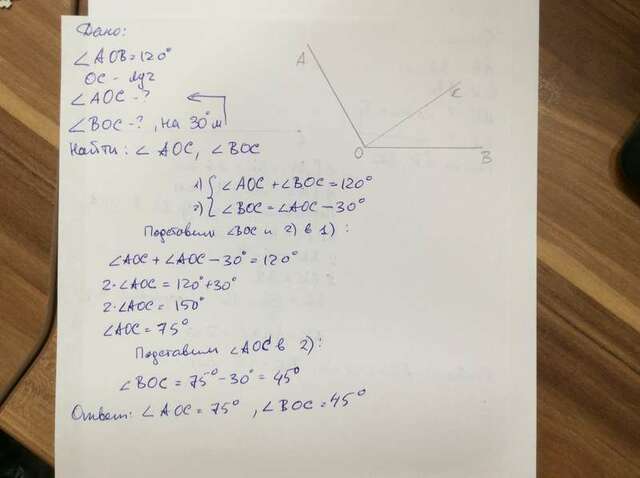 Дано:
∠AOB = 120°
OC – луч
∠AOC – ?
∠BOC – ?, на 30° м
Найти: ∠AOC, ∠BOC
A
C
O
B
1) { ∠AOC + ∠BOC = 120°
2) { ∠BOC = ∠AOC – 30°
Подставим ∠BOC из 2) в 1):
∠AOC + ∠AOC – 30° = 120°
2·∠AOC = 120° + 30°
2·∠AOC = 150°
∠AOC = 75°
Подставим ∠AOC в 2):
∠BOC = 75° – 30° = 45°
Ответ: ∠AOC = 75°, ∠BOC = 45°